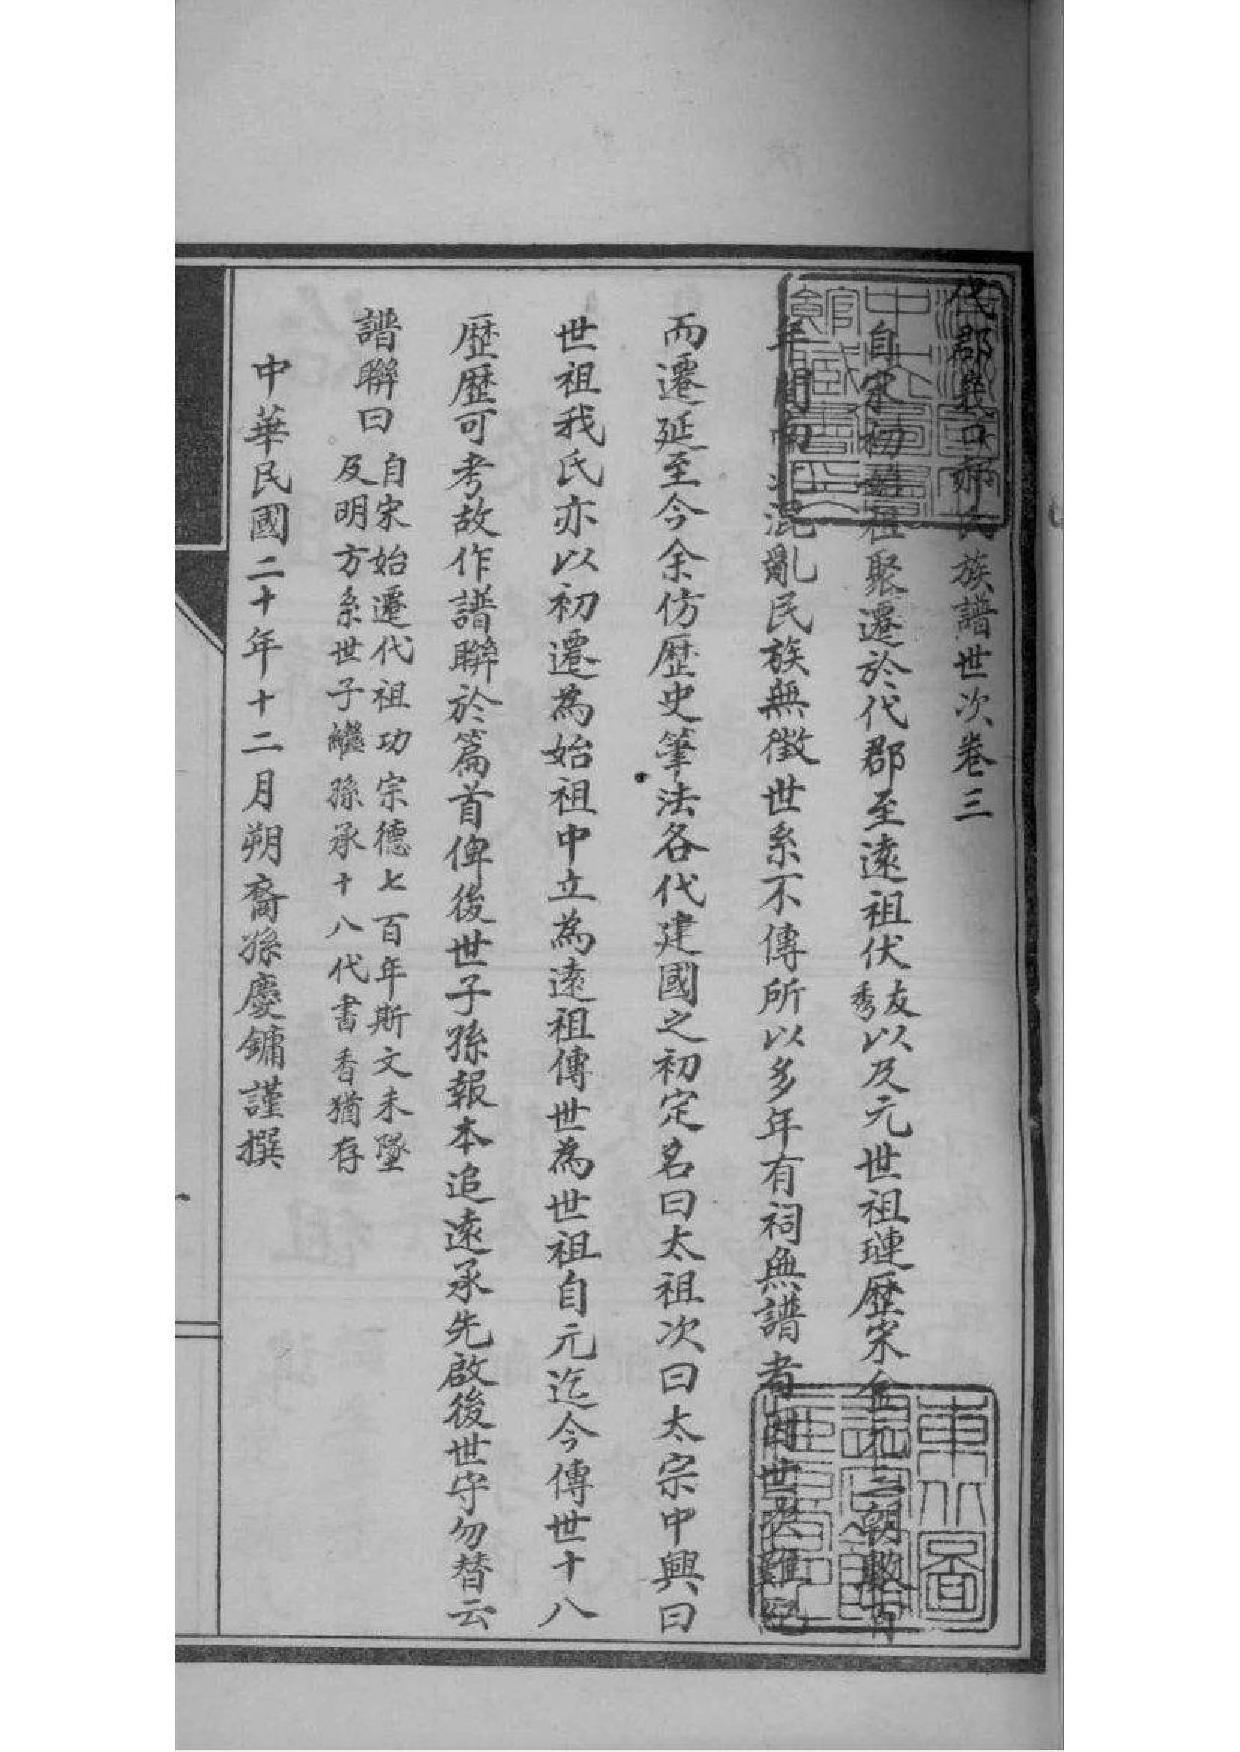 代郡峩口郝氏族譜世次卷三
自宋初始祖聚遷於代郡至遠祖伏友秀以及元世祖璉歷宋金元三朝數百
年間而混亂民族無徵世系不傳所以多年有祠無譜者因世次難
而遷延至今余仿歷史筆法各代建國之初定名曰太祖次曰太宗中興曰
世祖我氏亦以初遷為始祖中立為遠祖傳世為世祖自元迄今傳世十八
歷歷可考故作譜聯於篇首俾後世子孫報本追遠承先啟後世守勿替云
譜聯曰
自宋始遷代祖功宗德七百年斯文未墜
及明方系世子繼孫承十八代書香猶存
中華民國二十年十二月朔裔孫慶鏞謹撰